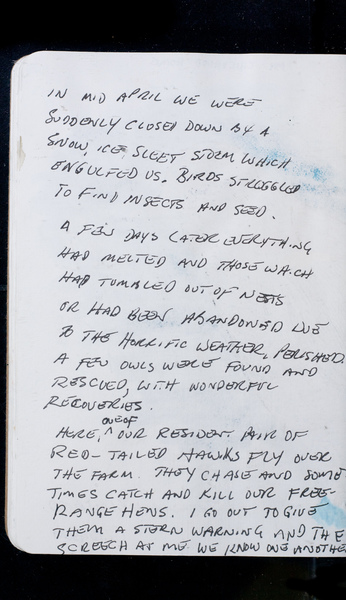 IN MID APRIL WE WERE
SUDDENLY CLOSED DOWN BY A
SNOW ICE SLEET STORM WHICH
ENGULFED US. BIRDS STRUGGLED
TO FIND INSECTS AND SEED.
A FEW DAYS LATER EVERYTHING
HAD MELTED AND THOSE WHICH
HAD TUMBLED OUT OF NESTS
OR HAD BEEN ABANDONED DUE
TO THE HORRIFIC WEATHER, PERISHED.
A FEW OWLS WERE FOUND AND
RESCUED, WITH WONDERFUL
RECOVERIES.
HERE, ONE OF OUR RESIDENT PAIR OF
RED-TAILED HAWKS FLY OVER
THE FARM. THEY CHASE AND SOME
TIMES CATCH AND KILL OUR FREE-
RANGE HENS. I GO OUT TO GIVE
THEM A STERN WARNING AND THE
SCREECH AT ME. WE KNOW ONE ANOTHE